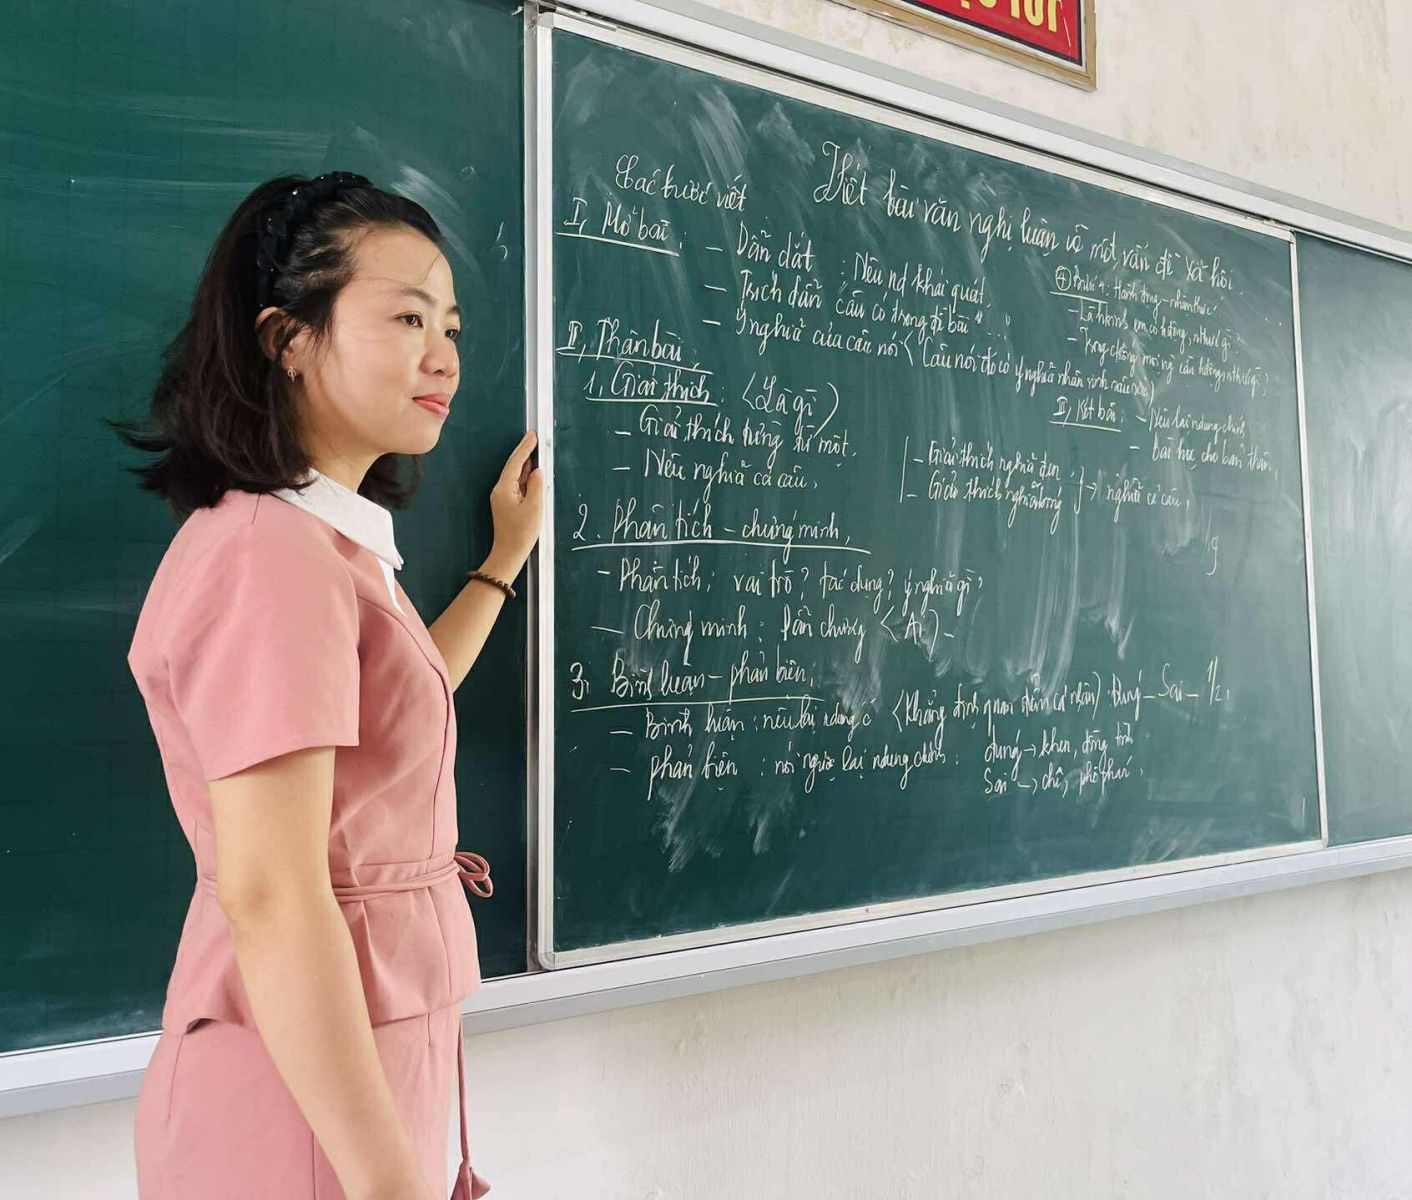 TỐT
Các bước viết
Viết bài văn nghị luận về một vấn đề xã hội
I, Mở bài : - Dẫn dắt : Nêu nd khái quát
- Trích dẫn câu có trong đề bài " "
- Ý nghĩa của câu nói < Câu nói đó có ý nghĩa nhân sinh sâu sắc)
II, Thân bài
1, Giải thích : <Là gì)
- Giải thích từng từ một,
- Nêu nghĩa cả câu,
- Giải thích nghĩa đen
- Giải thích nghĩa bóng } → nghĩa cả câu,
2. Phân tích - chứng minh,
- Phân tích; vai trò? tác dụng? ý nghĩa gì?
- Chứng minh : Dẫn chứng <Ai) -
3, Bình luận - phản biện;
- Bình luận : nêu lại ndung c <Khẳng định quan điểm cá nhân) : đúng - Sai - 1/2,
- phản biện : nói ngược lại ndung chính : đúng → khen, đồng tình
Sai → chê, phê phán,
④ Bước 4: Hành động - nhận thức
- Là hành em có hđộng, nthức gì?
- Trong cộng mọi ng cần hđộng nthức gì?
III, Kết bài : - Nêu lại ndung chính
- bài học cho bản thân,